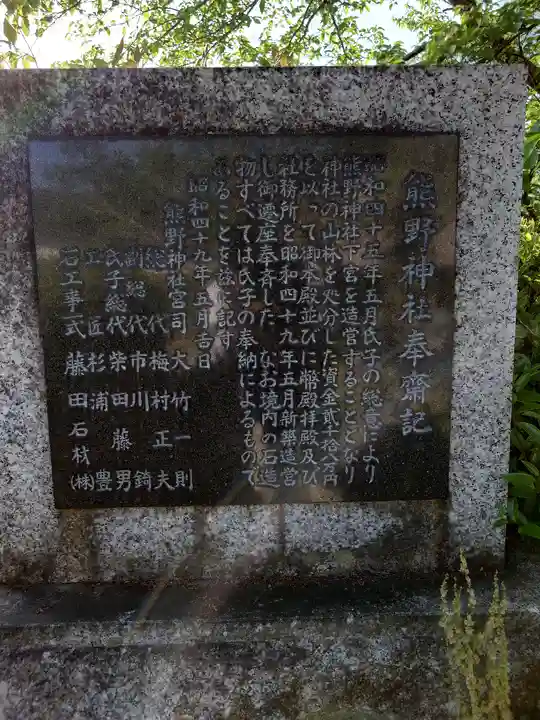 熊野神社奉齋記
昭和四十五年五月氏子の総意により
熊野神社下宮を造営することとなり
神社の山林を処分した資金貳千拾八万円
を以って御本殿並びに幣殿拝殿及び
社務所を昭和四十九年五月新築造営
し御遷座奉斉した なお境内の石造
物すべては氏子の奉納によるもので
あることを茲に記す
昭和四十九年五月吉日
熊野神社宮司 大竹一則
総代 梅村正夫
副総代 市川錡
氏子総代 柴田藤男
工匠 杉浦豊
石工事一式 藤田石材(株)